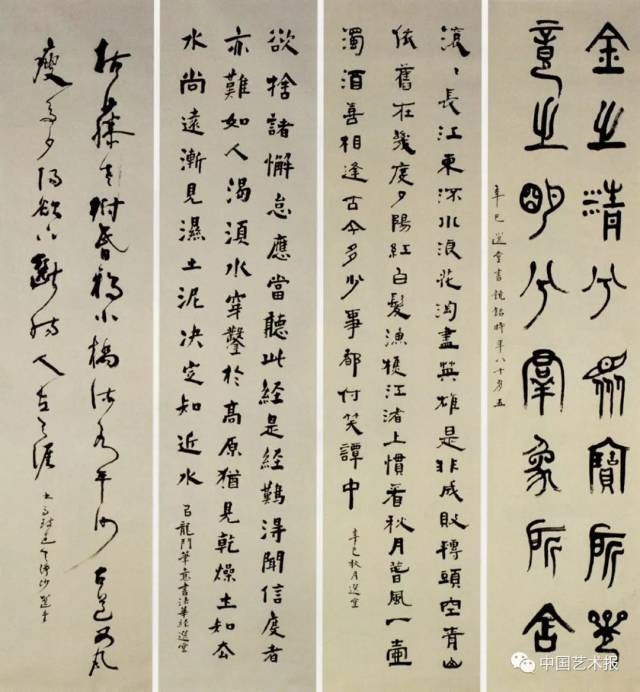 金之清兮寶所
意之明兮群象所
辛巳選堂書鏡銘時年八十有五
滾〻長江東逝水浪花淘盡英雄是非成敗轉頭空青山
依舊在幾度夕陽紅白髮漁樵江渚上慣看秋月春風一壺
濁酒喜相逢古今多少事都付笑譚中
辛巳秋月選堂
欲捨諸懈怠應當聽此經是經難得聞信受者
亦難如人渴須水穿鑿於高原猶見乾燥土知去
水尚遠漸見濕土泥決定知近水
以龍門筆意書法華經選堂
枯藤老樹昏鴉小橋流水平沙古道西風
瘦馬夕陽西下斷腸人在天涯
中国艺术报